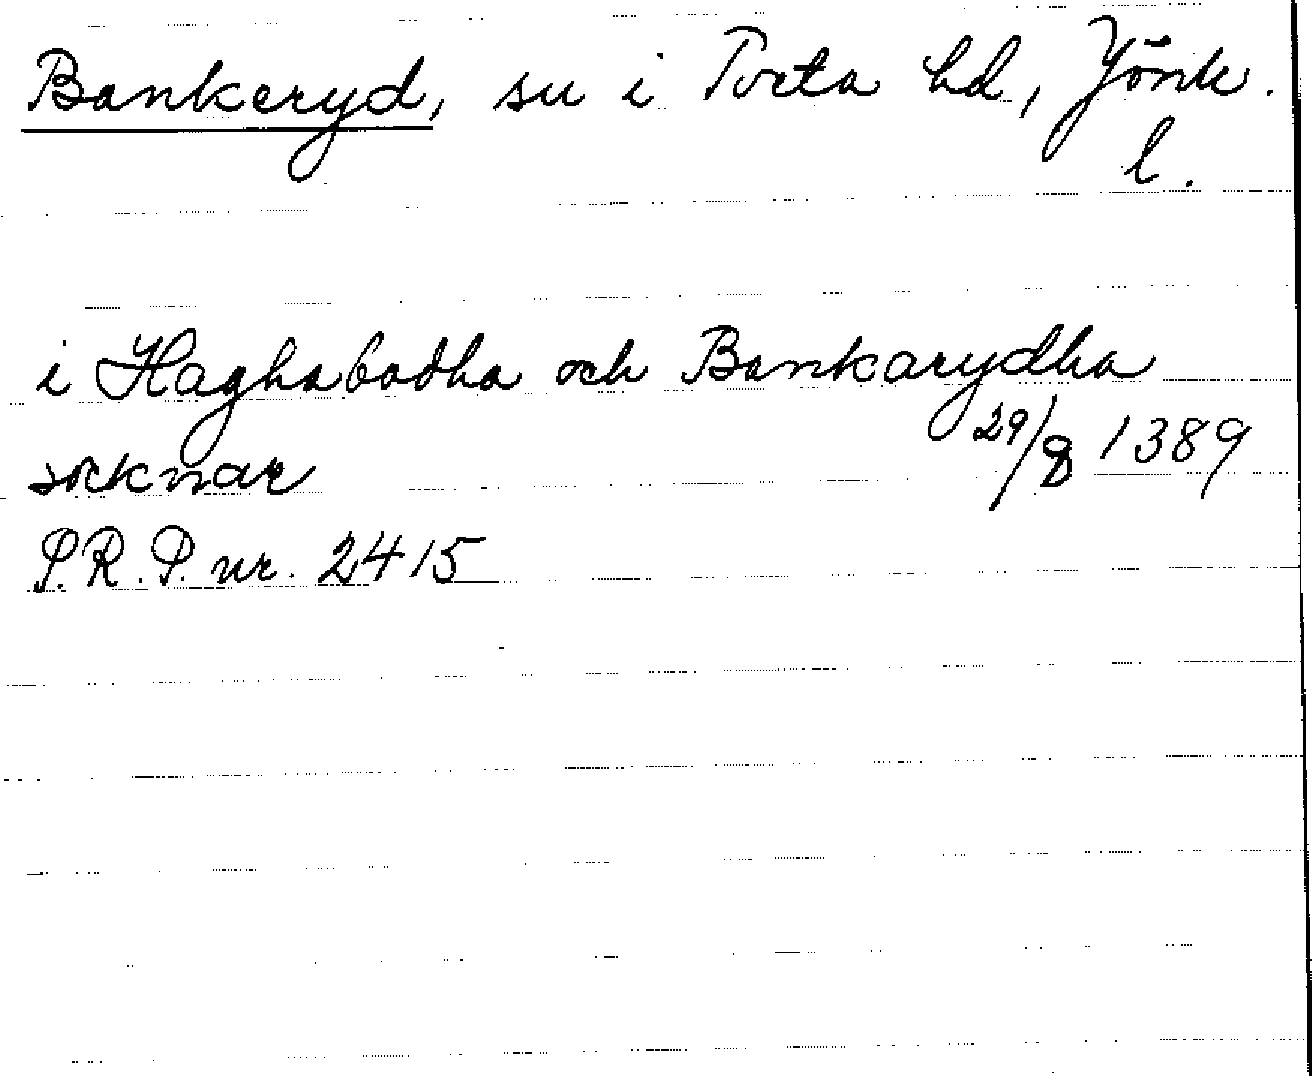 Bankeryd, sn i Tveta hd, Jönk.
l.
i Haghabodha och Bankarydha
socknar 29/8 1389
S.R.P. nr. 2415